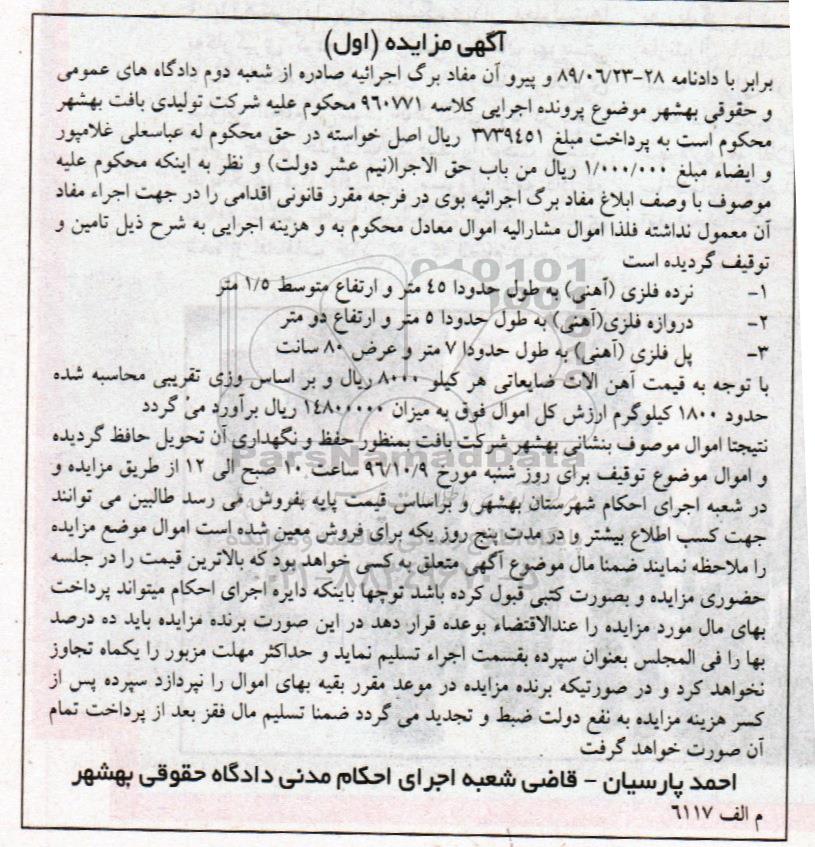 آگهی مزایده (اول)
برابر با دادنامه ۲۸-۸۹/۰۶/۲۳ و پیرو آن مفاد برگ اجرائیه صادره از شعبه دوم دادگاه های عمومی
و حقوقی بهشهر موضوع پرونده اجرایی کلاسه ۹۶۰۷۷۱ محکوم علیه شرکت تولیدی بافت بهشهر
محکوم است به پرداخت مبلغ ۳۷۳۹٤٥۱ ریال اصل خواسته در حق محکوم له عباسعلی غلامپور
و ایضاء مبلغ ۱/۰۰۰/۰۰۰ ریال من باب حق الاجرا(نیم عشر دولت) و نظر به اینکه محکوم علیه
موصوف با وصف ابلاغ مفاد برگ اجرائیه بوی در فرجه مقرر قانونی اقدامی را در جهت اجراء مفاد
آن معمول نداشته فلذا اموال مشارالیه اموال معادل محکوم به و هزینه اجرایی به شرح ذیل تامین و
توقیف گردیده است
۱- نرده فلزی (آهنی) به طول حدودا ٤٥ متر و ارتفاع متوسط ۱/٥ متر
۲- دروازه فلزی(آهنی) به طول حدودا ٥ متر و ارتفاع دو متر
۳- پل فلزی (آهنی) به طول حدودا ۷ متر و عرض ۸۰ سانت
با توجه به قیمت آهن الات ضایعاتی هر کیلو ۸۰۰۰ ریال و بر اساس وزی تقریبی محاسبه شده
حدود ۱۸۰۰ کیلوگرم ارزش کل اموال فوق به میزان ۱٤۸۰۰۰۰۰ ریال برآورد می گردد
نتیجتا اموال موصوف بنشانی بهشهر شرکت بافت بمنظور حفظ و نگهداری آن تحویل حافظ گردیده
و اموال موضوع توقیف برای روز شنبه مورخ ۹۶/۱۰/۹ ساعت ۱۰ صبح الی ۱۲ از طریق مزایده و
در شعبه اجرای احکام شهرستان بهشهر و براساس قیمت پایه بفروش می رسد طالبین می توانند
جهت کسب اطلاع بیشتر و در مدت پنج روز یکه برای فروش معین شده است اموال موضع مزایده
را ملاحظه نمایند ضمنا مال موضوع آگهی متعلق به کسی خواهد بود که بالاترین قیمت را در جلسه
حضوری مزایده و بصورت کتبی قبول کرده باشد توجها باینکه دایره اجرای احکام میتواند پرداخت
بهای مال مورد مزایده را عندالاقتضاء بوعده قرار دهد در این صورت برنده مزایده باید ده درصد
بها را فی المجلس بعنوان سپرده بقسمت اجراء تسلیم نماید و حداکثر مهلت مزبور را یکماه تجاوز
نخواهد کرد و در صورتیکه برنده مزایده در موعد مقرر بقیه بهای اموال را نپردازد سپرده پس از
کسر هزینه مزایده به نفع دولت ضبط و تجدید می گردد ضمنا تسلیم مال فقز بعد از پرداخت تمام
آن صورت خواهد گرفت
احمد پارسیان - قاضی شعبه اجرای احکام مدنی دادگاه حقوقی بهشهر
م الف ۶۱۱۷
ParsNamadData